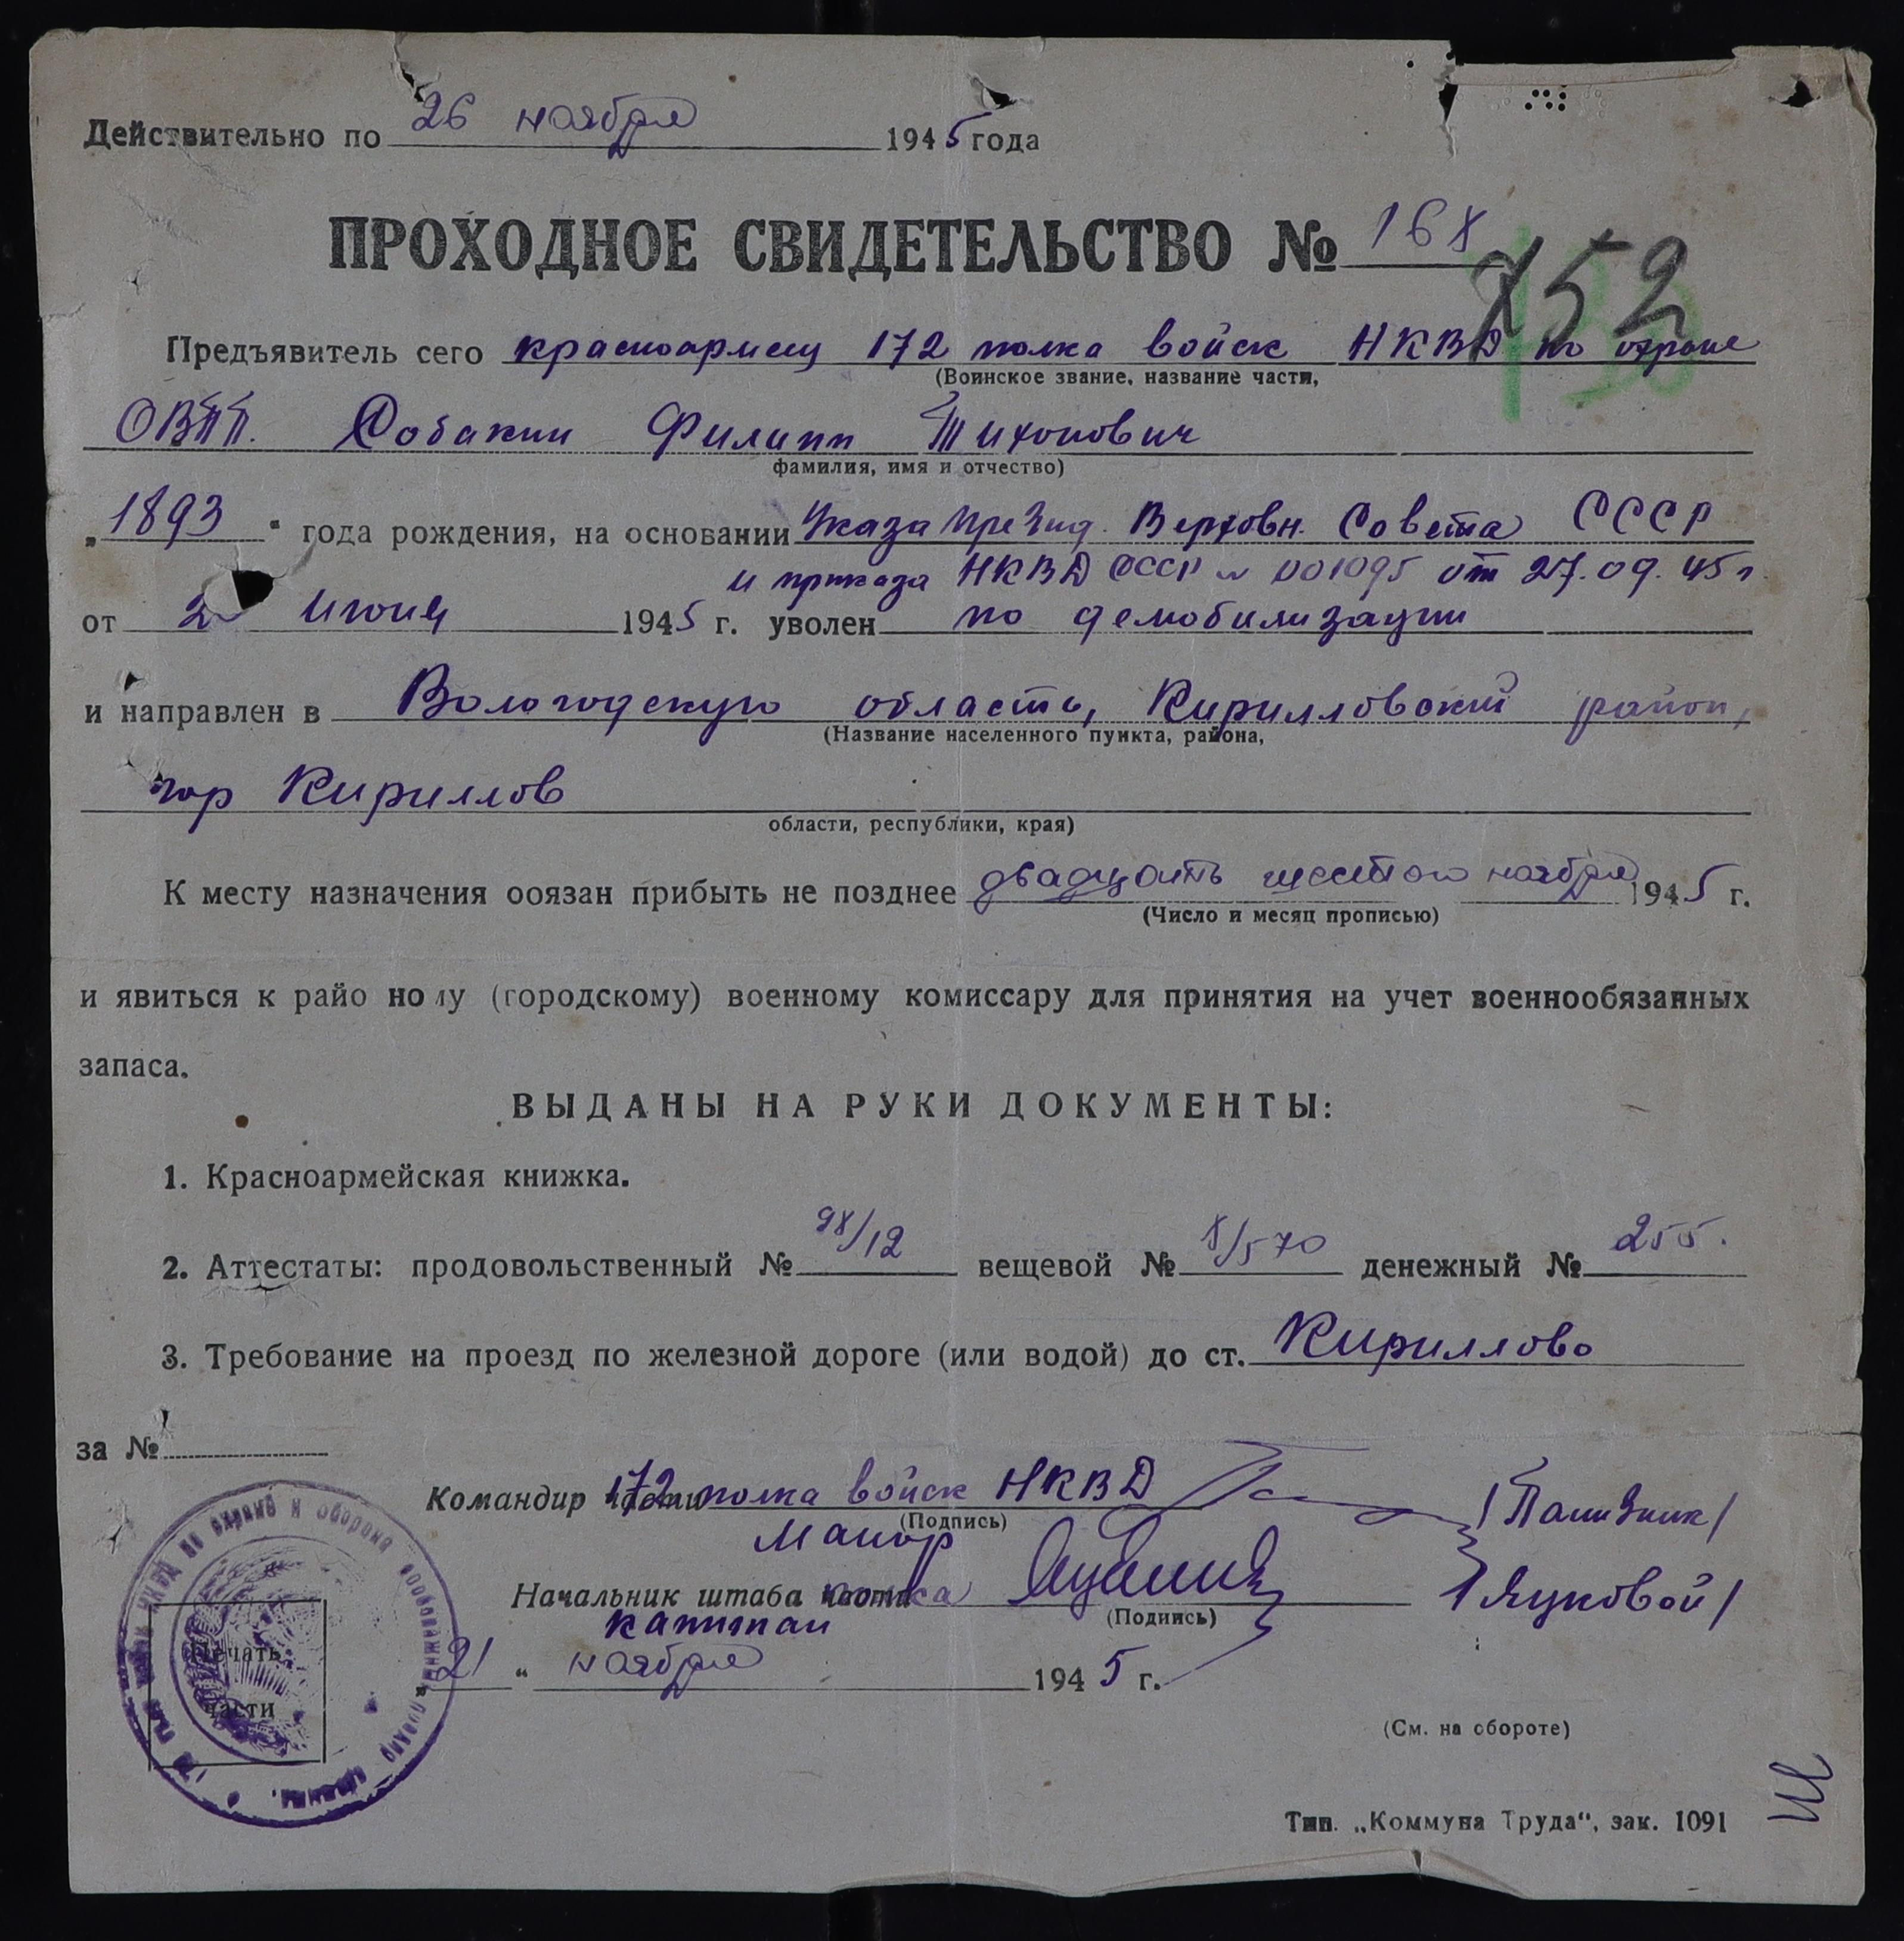 Действительно по 26 ноября 1945 года
ПРОХОДНОЕ СВИДЕТЕЛЬСТВО № 168
752
Предъявитель сего красноармеец 172 полка войск НКВД по охране
(Воинское звание, название части,
ОВПП. Собакин Филипп Тихонович
фамилия, имя и отчество)
„1893" года рождения, на основании Указа Презид. Верховн. Совета СССР
и приказа НКВД СССР № 001095 от 27.09.45 г.
от июня 1945 г. уволен по демобилизации
и направлен в Вологодскую область, Кирилловский район,
(Название населенного пункта, района,
гор Кириллов
области, республики, края)
К месту назначения обязан прибыть не позднее двадцать шестого ноября 1945 г.
(Число и месяц прописью)
и явиться к райо ному (городскому) военному комиссару для принятия на учет военнообязанных
запаса.
ВЫДАНЫ НА РУКИ ДОКУМЕНТЫ:
1. Красноармейская книжка.
2. Аттестаты: продовольственный № 98/12 вещевой № 8/570 денежный № 255.
3. Требование на проезд по железной дороге (или водой) до ст. Кириллово
за №
Командир части 172 полка войск НКВД
(Подпись)
Майор
Начальник штаба полка /Яцковой/
(Подпись)
капитан
„21" ноября 1945 г.
Печать
части
(См. на обороте)
Тип. „Коммуна Труда", зак. 1091